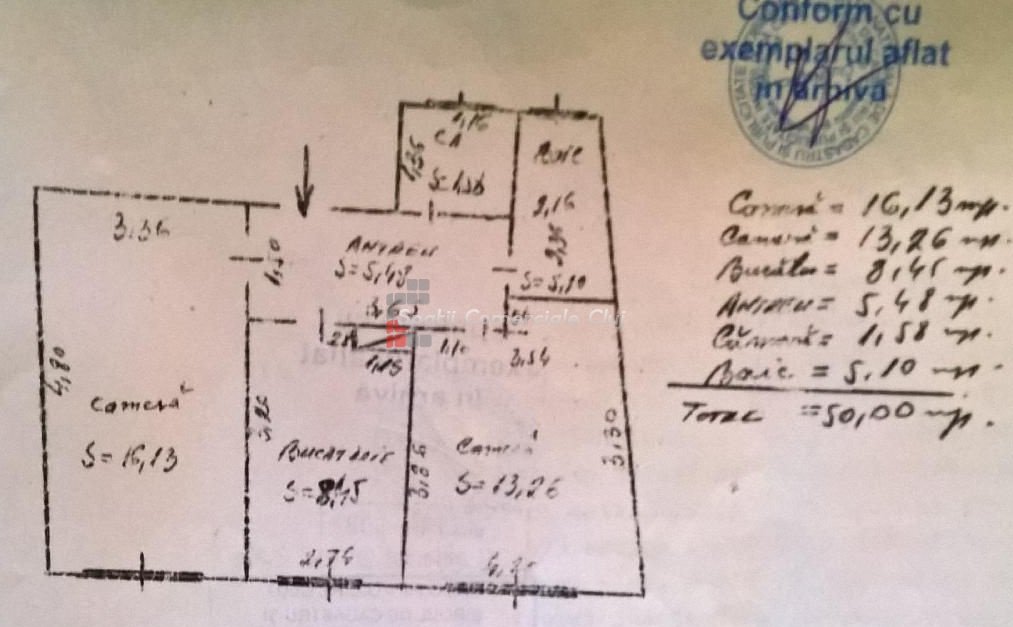 Conform cu
exemplarul aflat
in arhiva
Cameră = 16,13 mp.
Cameră = 13,26 mp.
Bucătar = 8,45 mp.
ANTREU = 5,48 mp.
Cămară = 1,58 mp.
Baie = 5,10 mp.
TOTAL = 50,00 mp.
1,16
CĂ
1,36
S=1,58
Baie
2,16
2,36
S=5,10
3,36
1,50
ANTREU
S=5,48
Spatii Comerciale Cluj
1,10
1,15
3,54
4,80
Cameră
S=16,13
3,26
BUCATARIE
S=8,45
3,26
Cameră
S=13,26
3,30
2,76